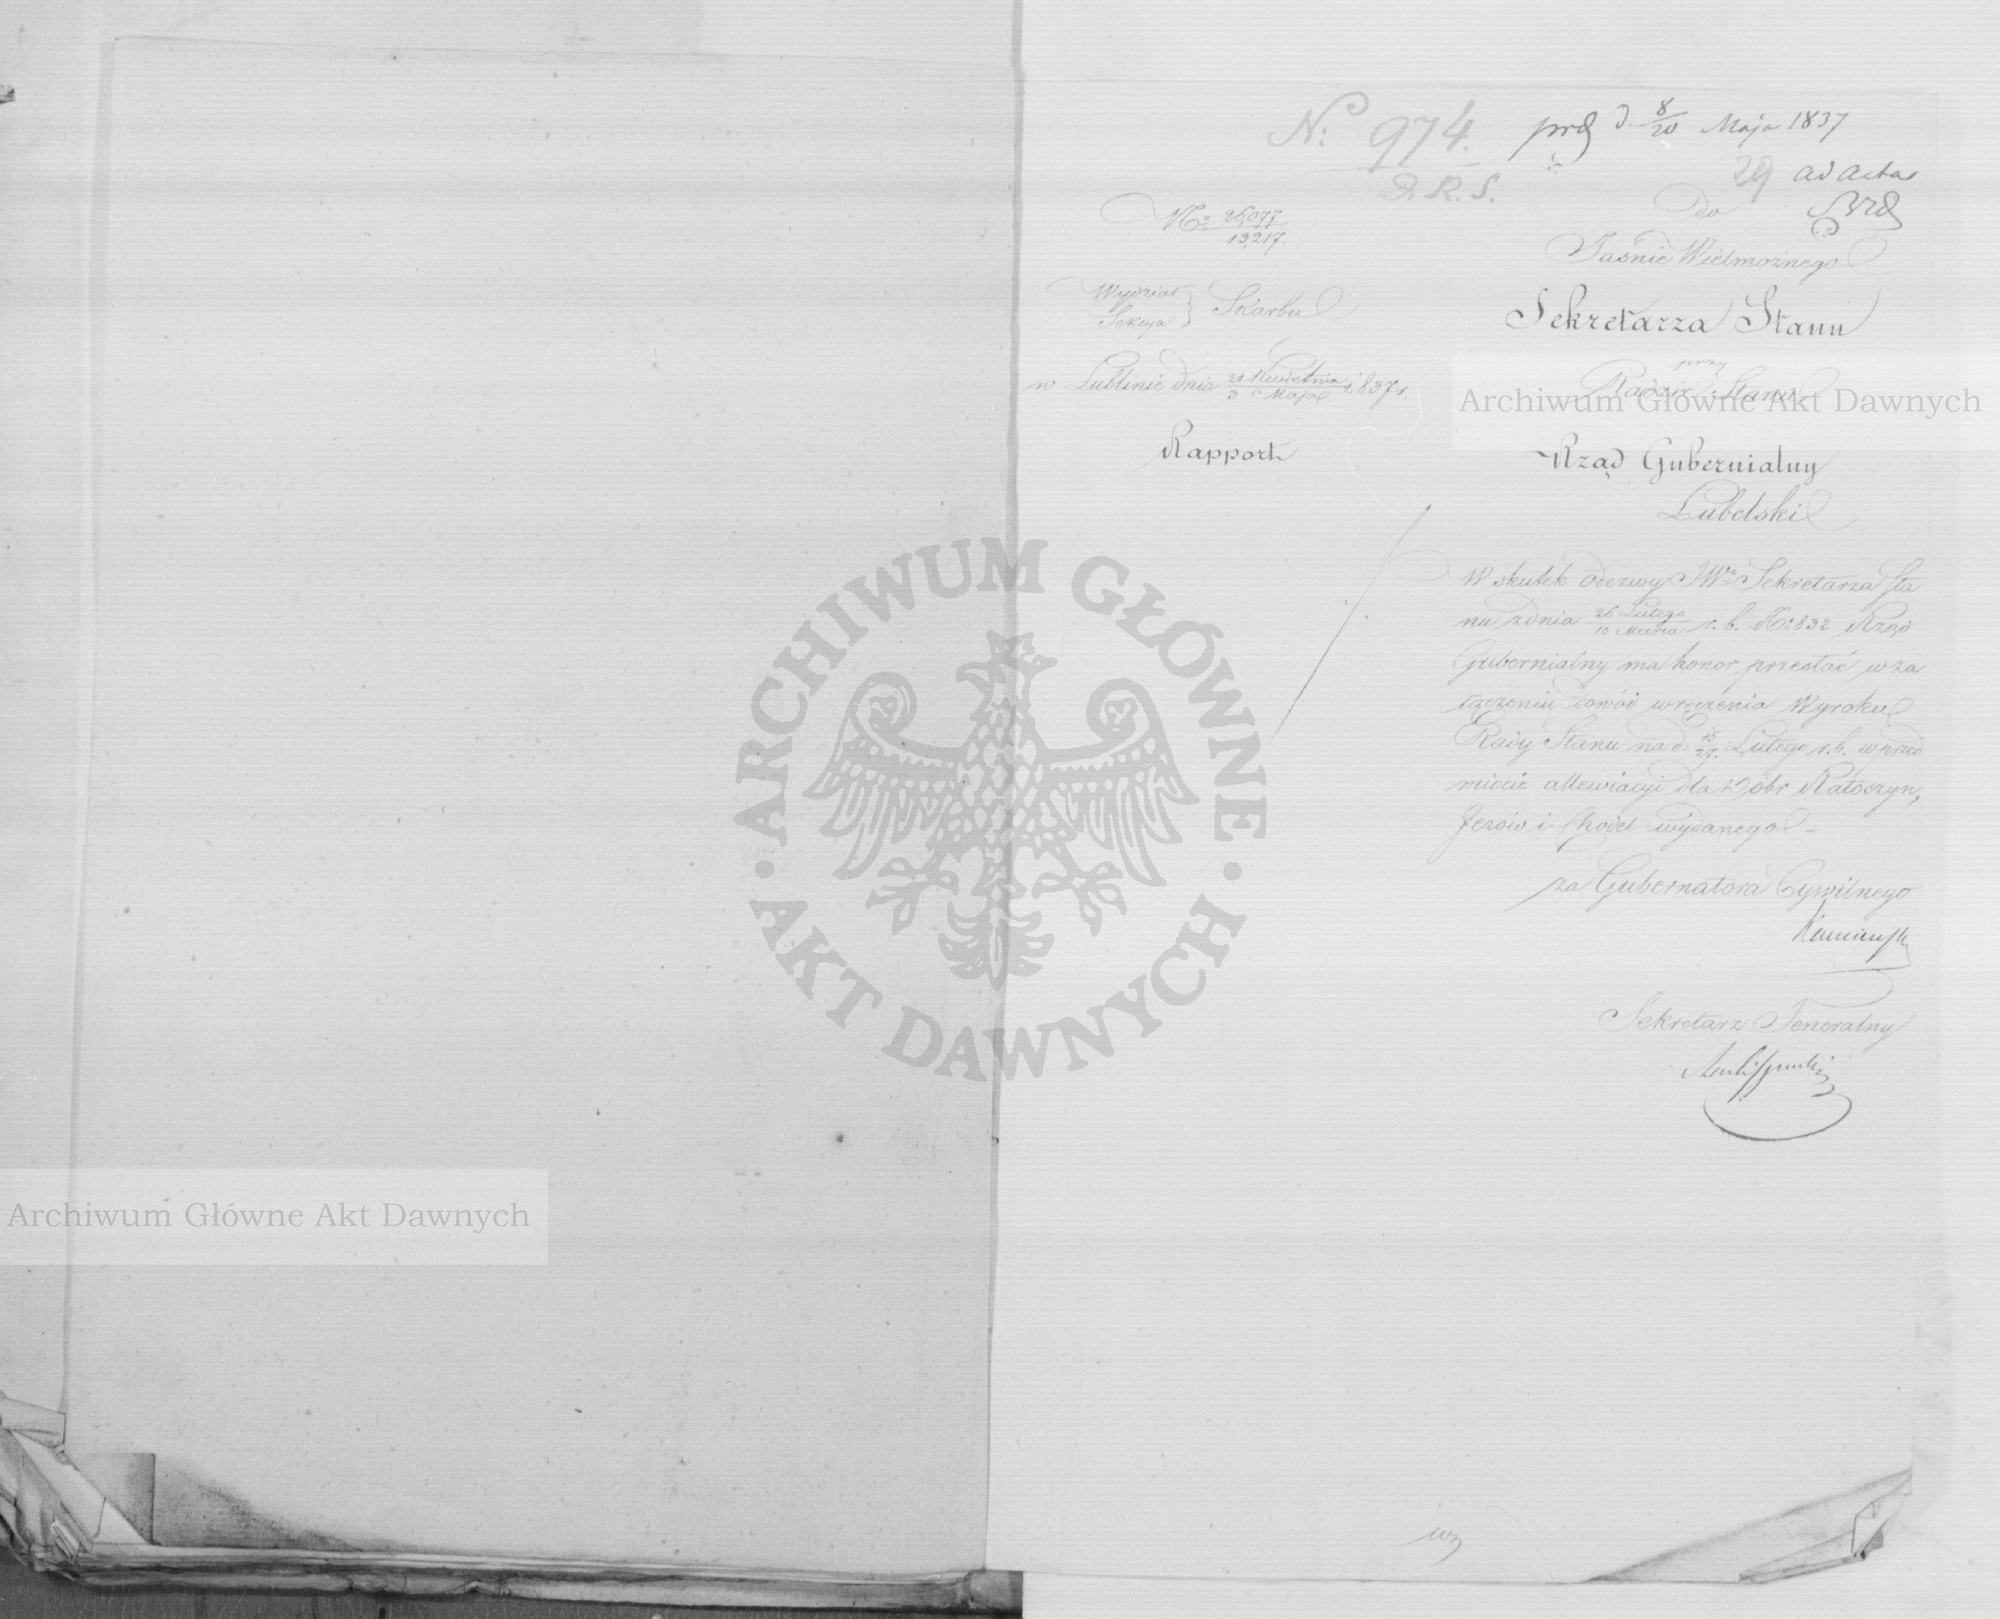 N: 974.
D. R. S.
prd d. 8/20 Maja 1837
29 ad acta
No 26,077/13,217.
do
Jaśnie Wielmożnego
Wydział
Sekcya } Skarbu
Sekretarza Stanu
przy
Radzie Stanu
w Lublinie dnia 21 Kwietnia/3 Maja 1837 r.
Rapport
Rząd Gubernialny
Lubelski
W skutek odezwy JWo Sekretarza Sta
nu zdnia 26 Lutego/10 Marca r. b. No 832 Rząd
Gubernialny ma honor przesłać wza
łączeniu dowód wręczenia Wyroku
Rady Stanu na d. 15/27. Lutego r. b. wprzed
miocie allewiacyi dla Dóbr Ratoszyn,
Jeżów i Chodel wydanego –
za Gubernatora Cywilnego
Sekretarz Jeneralny
Archiwum Główne Akt Dawnych
Archiwum Główne Akt Dawnych
ARCHIWUM GŁÓWNE
AKT DAWNYCH